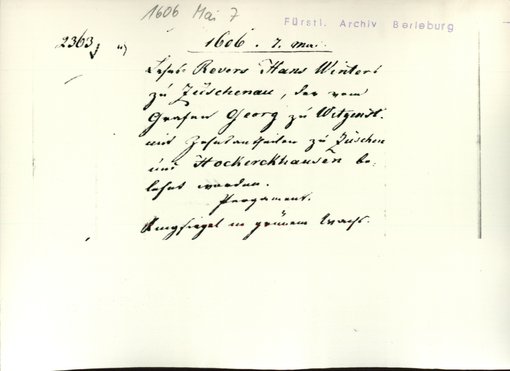 1606 Mai 7
Fürstl. Archiv Berleburg
2363
1606. 7. Mai.
Lehns Revers Hans Winters
zu Züschenau, der vom
Grafen Georg zu Witgenst.
mit Zehntantheilen zu Züschen
und Hockerckhausen be-
lehnt worden.
Pergament.
Ringsiegel in grünem Wachs.